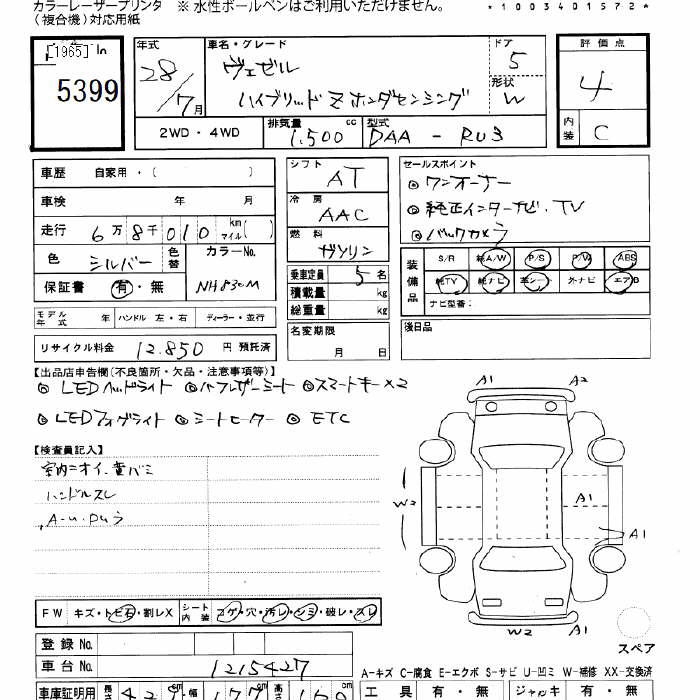 カラーレーザープリンタ ※水性ボールペンはご利用いただけません。 *1003401572*
(複合機)対応用紙
[1965] In
5399
年式 車名・グレード ドア 評価点
28/7月 ヴェゼル 5 4
ハイブリッドZホンダセンシング 形状 W
2WD・4WD 排気量 1,500 cc 型式 DAA - RU3 内装 C
車歴 自家用・( ) シフト AT セールスポイント
◎ワンオーナー
車検 年 月 冷房 AAC ◎純正インターナビ.TV
走行 6万8千010 km マイル( ) 燃料 ガソリン ◎バックカメラ
色 シルバー 色替 カラーNo. NH830M 乗車定員 5名
装備品 S/R 純A/W P/S P/W ABS
保証書 有・無 積載量 kg 純TV 純ナビ 革シート 外ナビ エアB
総重量 kg ナビ型番:
モデル年式 年 ハンドル 左・右 ディーラー・並行 名変期限 月 日 後日品
リサイクル料金 12,850 円 預託済
【出品店申告欄(不良箇所・欠品・注意事項等)】
◎LEDヘッドライト ◎ハーフレザーシート ◎スマートキー×2
◎LEDフォグライト ◎シートヒーター ◎ETC
【検査員記入】
室内ニオイ.黄バミ
ハンドルスレ
A-U.DUう
A1 A2
W2 A1
A1
W2 A1
スペア
FW キズ・トビ石・割レX シート内装 コゲ・穴・汚レ・シミ・破レ・スレ
登録No.
車台No. 1215427
A=キズ C=腐食 E=エクボ S=サビ U=凹ミ W=補修 XX=交換済
車庫証明用 長さ 429 幅 177 cm 160 cm 工具 有・無 ジャッキ 有・無